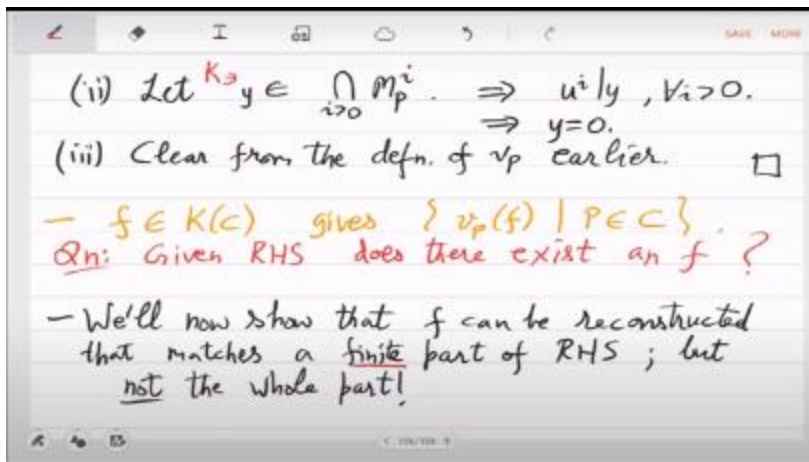 SAVE MORE
(ii) Let K∋y ∈ ⋂_{i>0} m_p^i. ⇒ u^i | y, ∀i>0.
⇒ y=0.
(iii) Clear from the defn. of v_p earlier. □
— f ∈ K(C) gives { v_p(f) | P ∈ C }.
Qn: Given RHS does there exist an f ?
— We'll now show that f can be reconstructed
that matches a finite part of RHS ; but
not the whole part!